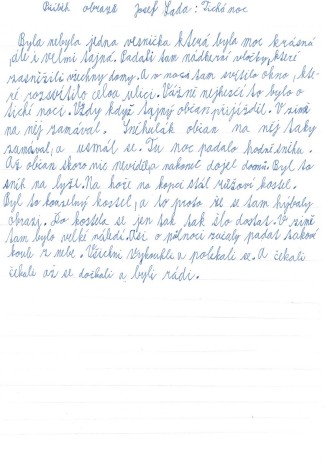 Příběh obrazu Josef Lada: Tichá noc
Byla nebyla jedna vesnička která byla moc krásná
ale i velmi tajná. Padali tam nádherné vločky, které
zasněžili všechny domy. A v noci tam svítilo okno, kte-
ré rozsvítilo celou ulici. Vážně nejhezčí to bylo o
tiché noci. Vždy když tajný občan přijížděl. V zimě
na něj zamával. Sněhulák občan na něj taky
zamával, a usmál se. Tu noc padalo hodně sněhu.
Až občan skoro nic neviděl a nakonec dojel domů. Byl to
sníh na lyže. Na hoře na kopci stál růžový kostel.
Byl to kouzelný kostel, a to proto že se tam hýbaly
obrazy. Do kostela se jen tak tak šlo dostat. V zimě
tam bylo velké náledí. Asi o půlnoci začaly padat takové
koule z nebe. Všichni vykoukli a polekali se. A čekali
čekali až se dočkali a byli rádi.